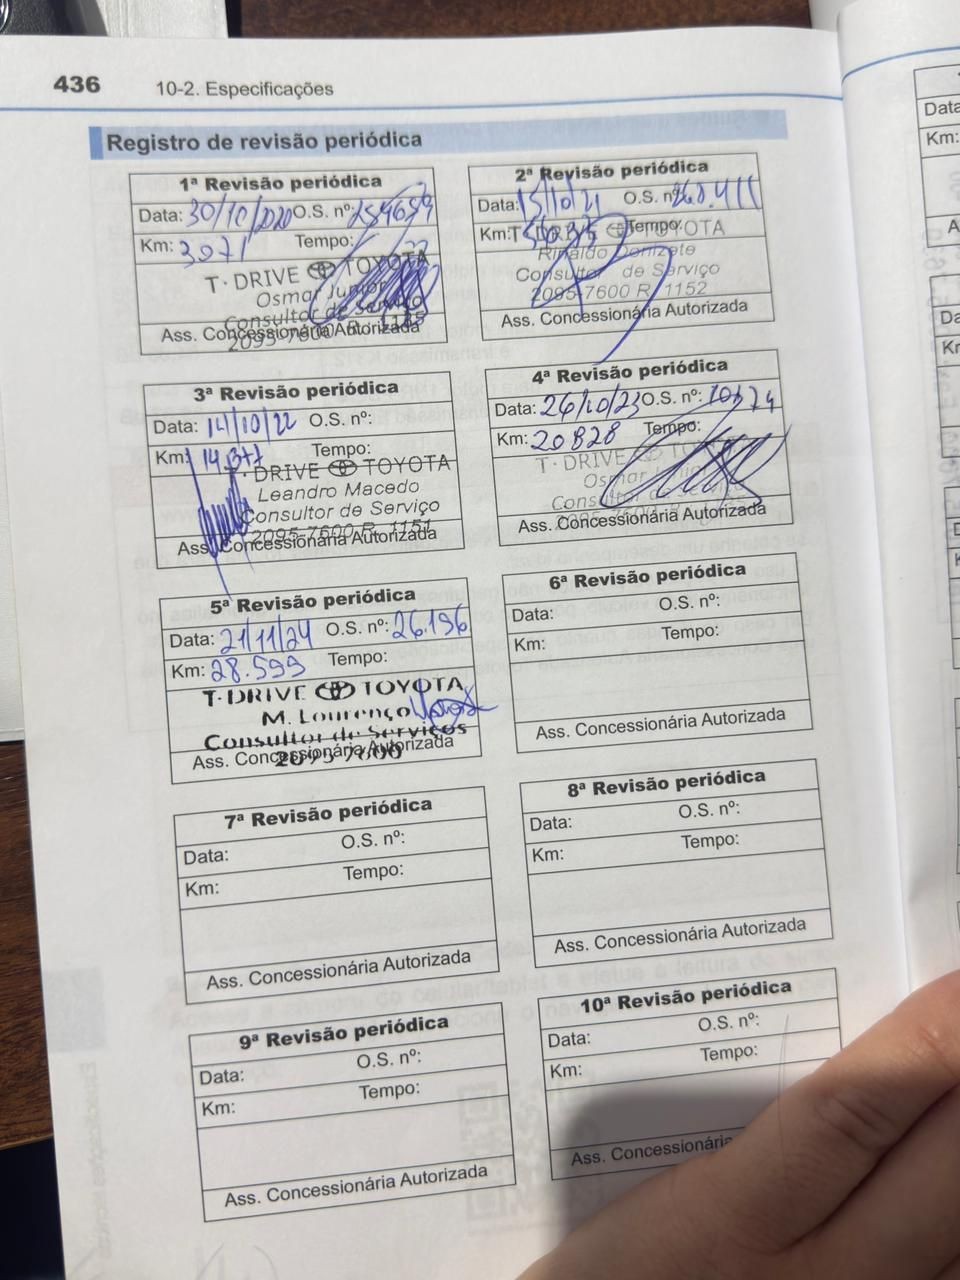 436
10-2. Especificações
Registro de revisão periódica
1ª Revisão periódica
Data: 30/10/2020 O.S. nº:
Km: 3071 Tempo:
T·DRIVE TOYOTA
Osmar Junior
Consultor de Serviço
2095-7600
Ass. Concessionária Autorizada
2ª Revisão periódica
Data: 15/10/21 O.S. nº: 268.411
Km: Tempo:
T·DRIVE TOYOTA
Rinaldo Donizete
Consultor de Serviço
2095-7600 R. 1152
Ass. Concessionária Autorizada
3ª Revisão periódica
Data: 14/10/22 O.S. nº:
Km: 14.377 Tempo:
T·DRIVE TOYOTA
Leandro Macedo
Consultor de Serviço
2095-7600 R. 1151
Ass. Concessionária Autorizada
4ª Revisão periódica
Data: 26/10/23 O.S. nº:
Km: 20828 Tempo:
T·DRIVE TOYOTA
Osmar Junior
Consultor de Serviço
2095-7600
Ass. Concessionária Autorizada
5ª Revisão periódica
Data: 21/11/24 O.S. nº: 26.196
Km: 28.599 Tempo:
T·DRIVE TOYOTA
M. Lourenço
Consultor de Serviços
2095-7600
Ass. Concessionária Autorizada
6ª Revisão periódica
Data: O.S. nº:
Km: Tempo:
Ass. Concessionária Autorizada
7ª Revisão periódica
Data: O.S. nº:
Km: Tempo:
Ass. Concessionária Autorizada
8ª Revisão periódica
Data: O.S. nº:
Km: Tempo:
Ass. Concessionária Autorizada
9ª Revisão periódica
Data: O.S. nº:
Km: Tempo:
Ass. Concessionária Autorizada
10ª Revisão periódica
Data: O.S. nº:
Km: Tempo:
Ass. Concessionária
Data
Km: